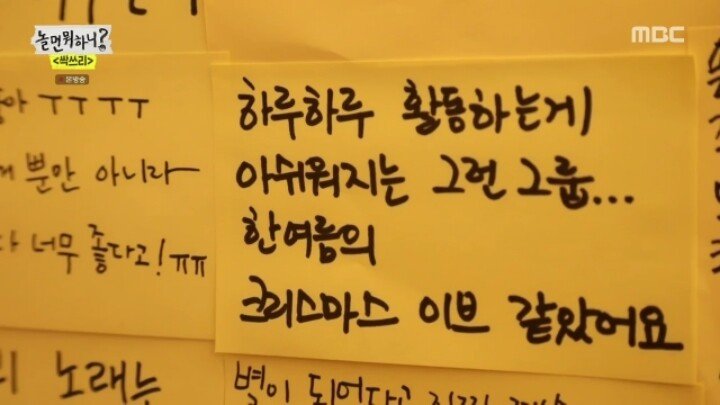 놀면 뭐하니?
<싹쓰리>
본방송
MBC
ㅜㅜㅜㅜ
뿐만 아니라
너무 좋다고! ㅠㅠ
하루하루 활동하는게
아쉬워지는 그런 그룹...
한여름의
크리스마스 이브 같았어요
노래는
별이 되어다고